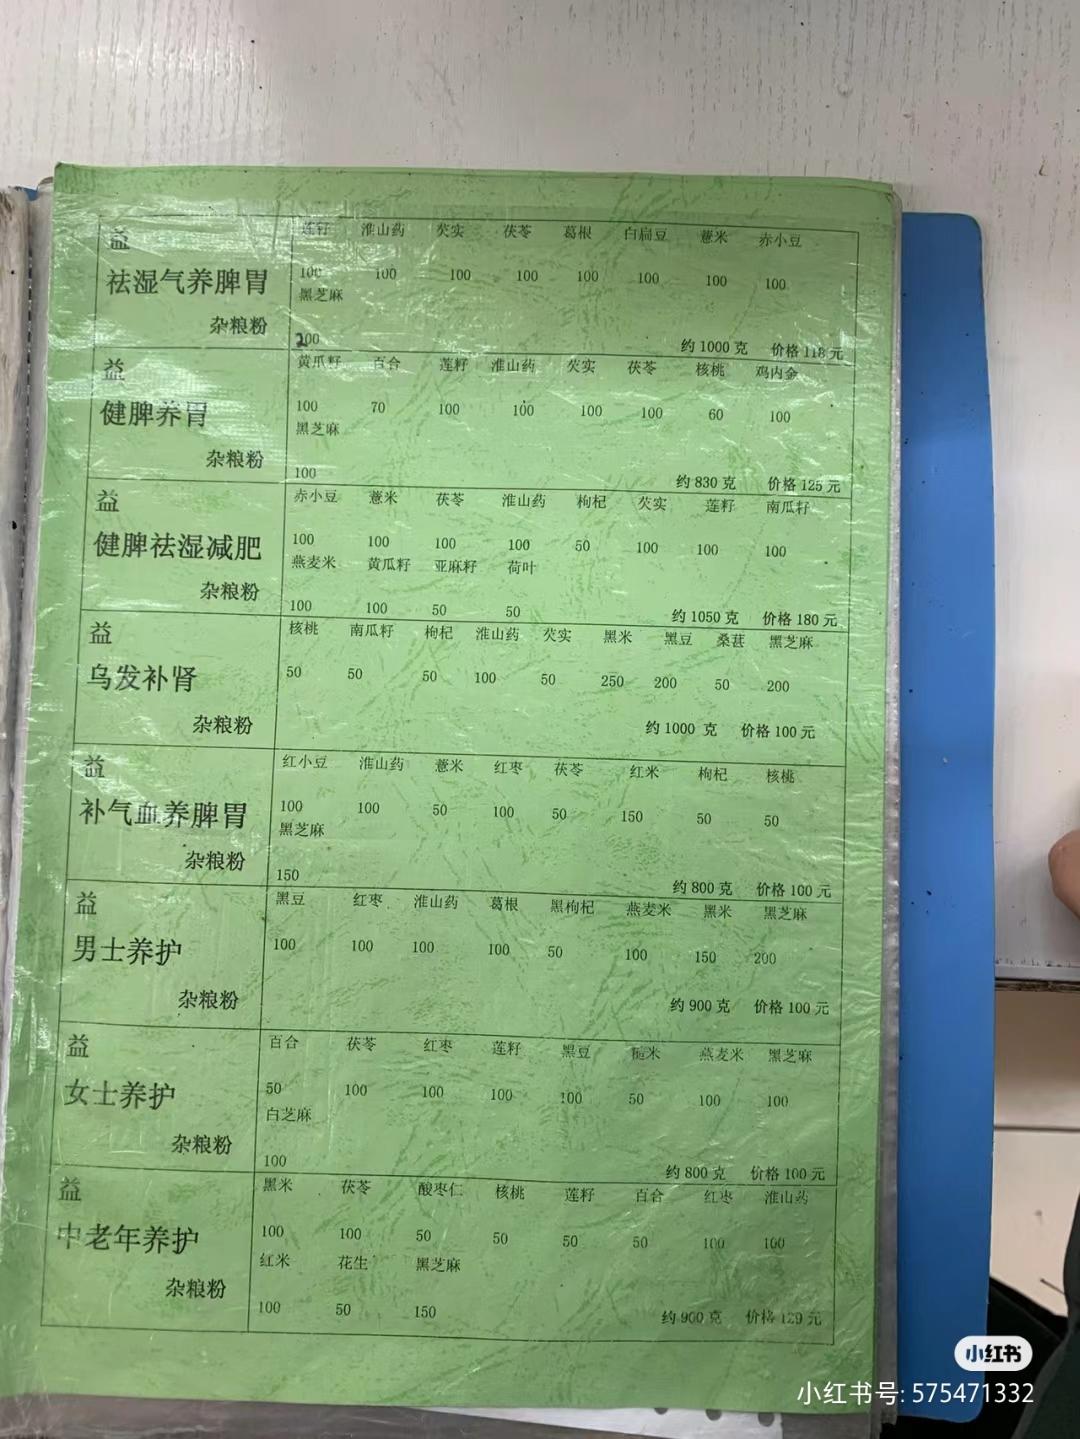 益
莲籽 淮山药 芡实 茯苓 葛根 白扁豆 薏米 赤小豆
祛湿气养脾胃
100 100 100 100 100 100 100 100
黑芝麻
杂粮粉
200
约1000克 价格118元
益
黄瓜籽 百合 莲籽 淮山药 芡实 茯苓 核桃 鸡内金
健脾养胃
100 70 100 100 100 100 60 100
黑芝麻
杂粮粉
100
约830克 价格125元
益
赤小豆 薏米 茯苓 淮山药 枸杞 芡实 莲籽 南瓜籽
健脾祛湿减肥
100 100 100 100 50 100 100 100
燕麦米 黄瓜籽 亚麻籽 荷叶
杂粮粉
100 100 50 50
约1050克 价格180元
益
核桃 南瓜籽 枸杞 淮山药 芡实 黑米 黑豆 桑葚 黑芝麻
乌发补肾
50 50 50 100 50 250 200 50 200
杂粮粉
约1000 克 价格100元
益
红小豆 淮山药 薏米 红枣 茯苓 红米 枸杞 核桃
补气血养脾胃
100 100 50 100 50 150 50 50
黑芝麻
杂粮粉
150
约800克 价格100元
益
黑豆 红枣 淮山药 葛根 黑枸杞 燕麦米 黑米 黑芝麻
男士养护
100 100 100 100 50 100 150 200
杂粮粉
约900克 价格100元
益
百合 茯苓 红枣 莲籽 黑豆 糙米 燕麦米 黑芝麻
女士养护
50 100 100 100 100 50 100 100
白芝麻
杂粮粉
100
约800克 价格100元
益
黑米 茯苓 酸枣仁 核桃 莲籽 百合 红枣 淮山药
中老年养护
100 100 50 50 50 50 100 100
红米 花生 黑芝麻
杂粮粉
100 50 150
约900克 价格129元
小红书
小红书号: 575471332